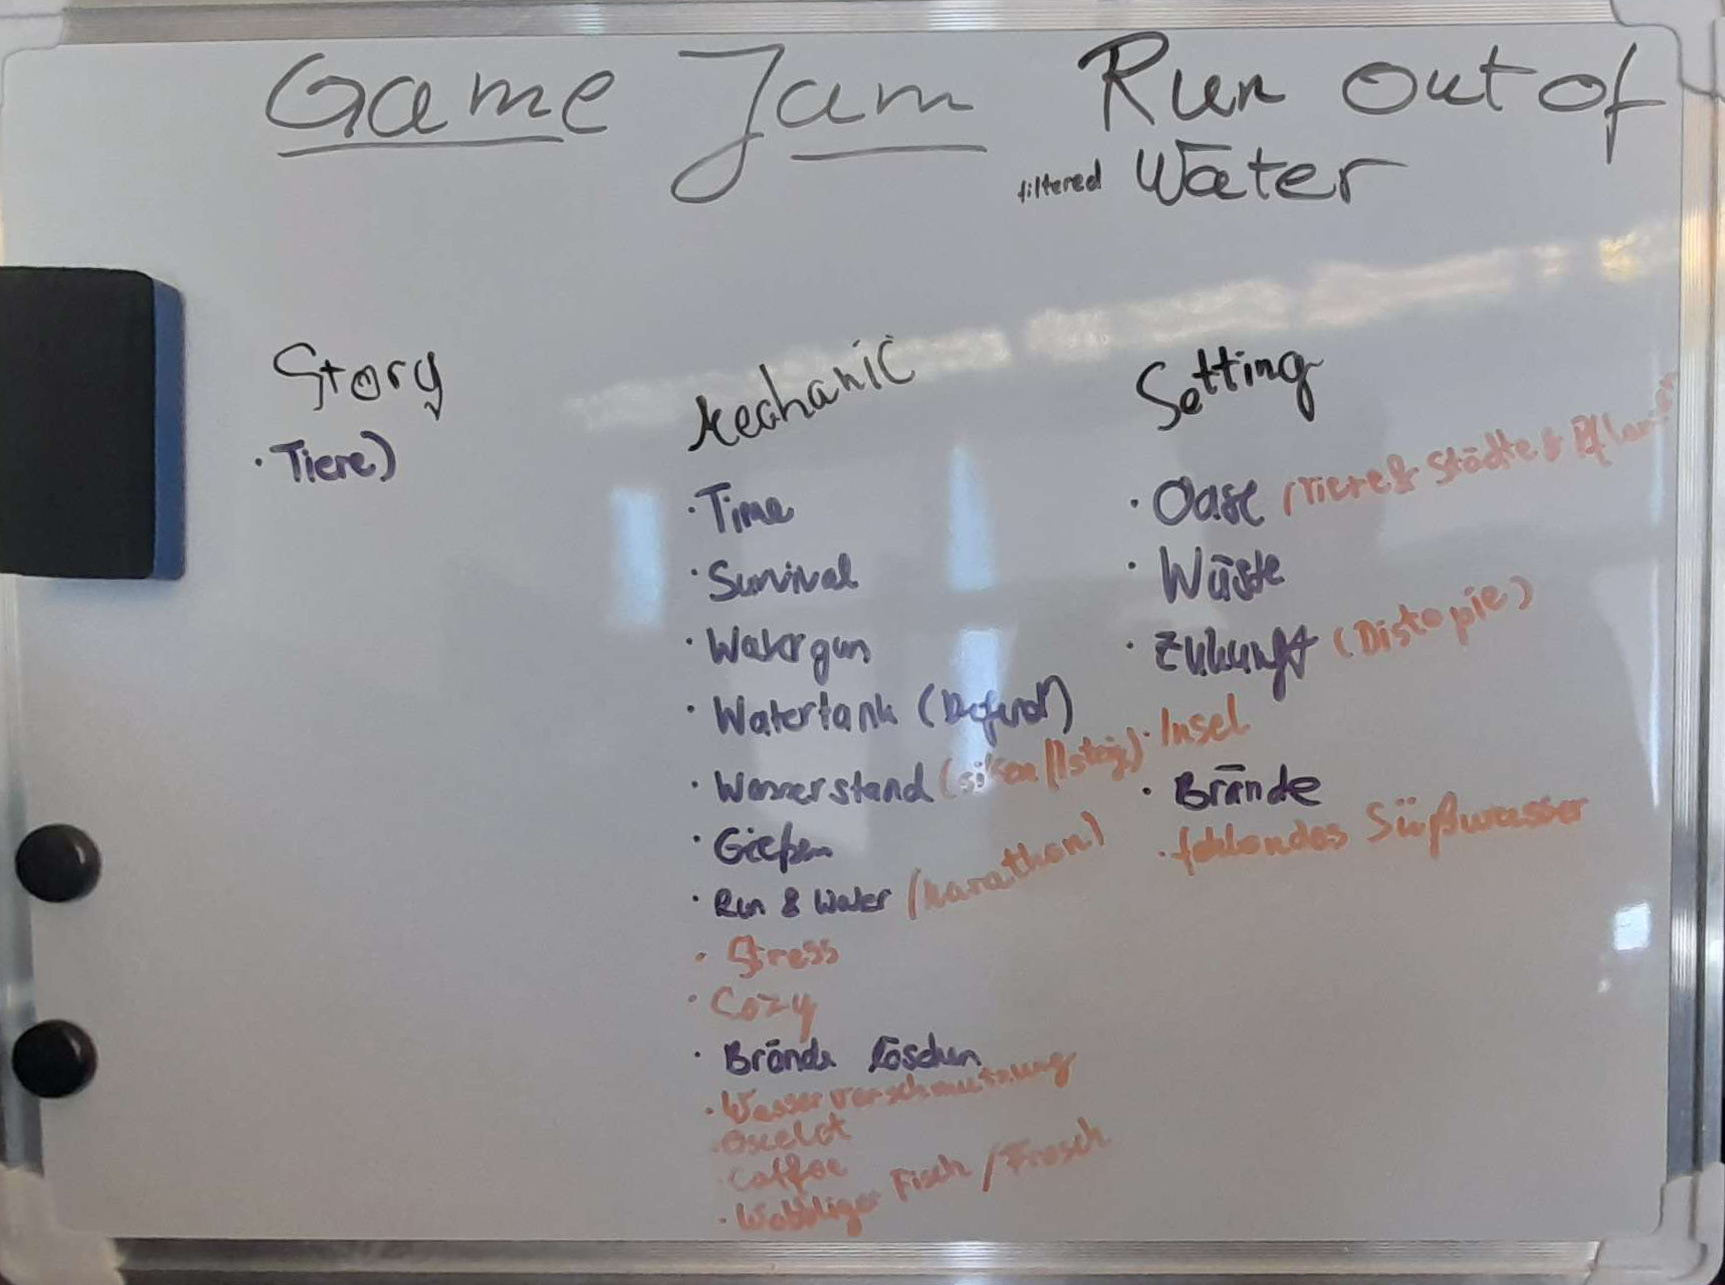 Game Jam Run out of
filtered Water
Story
· Tiere)
Mechanic
· Time
· Survival
· Watergun
· Watertank (Defend)
· Wasserstand
· Gießen
· Run & Water (Marathon)
· Stress
· Cozy
· Brände löschen
· Wasserverschmutzung
· Ocelot
· Caffee
· Wabbliger Fisch / Frosch
Setting
· Oase (Tiere & Städte & Pflanzen
· Wüste
· Zukunft (Distopie)
· Insel
· Brände
· fehlendes Süßwasser